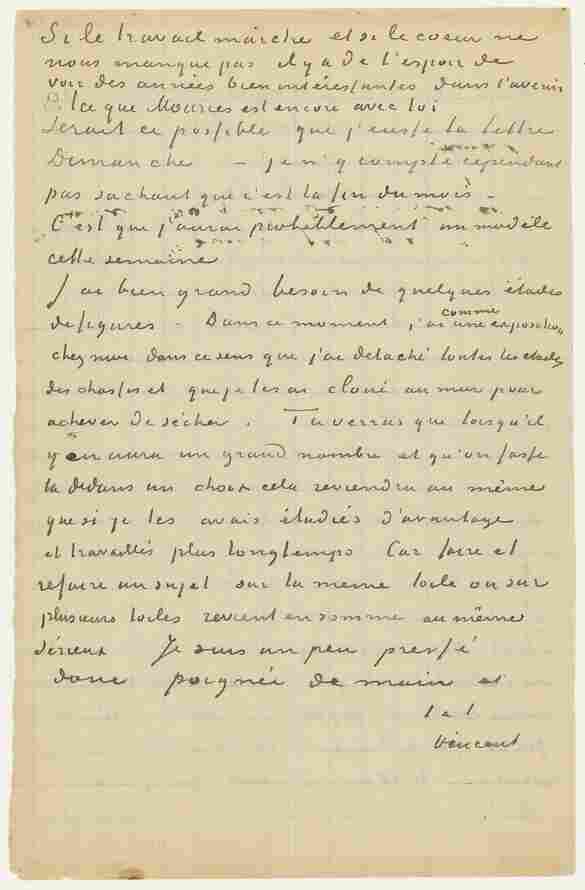 Si le travail marche et si le coeur ne
nous manque pas il y a de l'espoir de
voir des années bien intéressantes dans l'avenir
ce que Mourier est encore avec toi
Serait ce possible que j'eusse ta lettre
Dimanche – je n'y compte cependant
pas sachant que c'est la fin du mois –
C'est que j'aurai probablement un modèle
cette semaine
J'ai bien grand besoin de quelques études
de figures – Dans ce moment j'ai comme une exposition
chez moi dans ce sens que j'ai detaché toutes les etudes
des chassis et que je les ai cloué au mur pour
achever de sécher. Tu verras que lorsqu'il
y en aura un grand nombre et qu'on fasse
la dedans un choix cela reviendra au même
que si je les avais étudiés d'avantage
et travaillés plus longtemps Car faire et
refaire un sujet sur la meme toile ou sur
plusieurs toiles revient en somme au même
sérieux Je suis un peu pressé
donc poignée de main et
t. à t.
Vincent